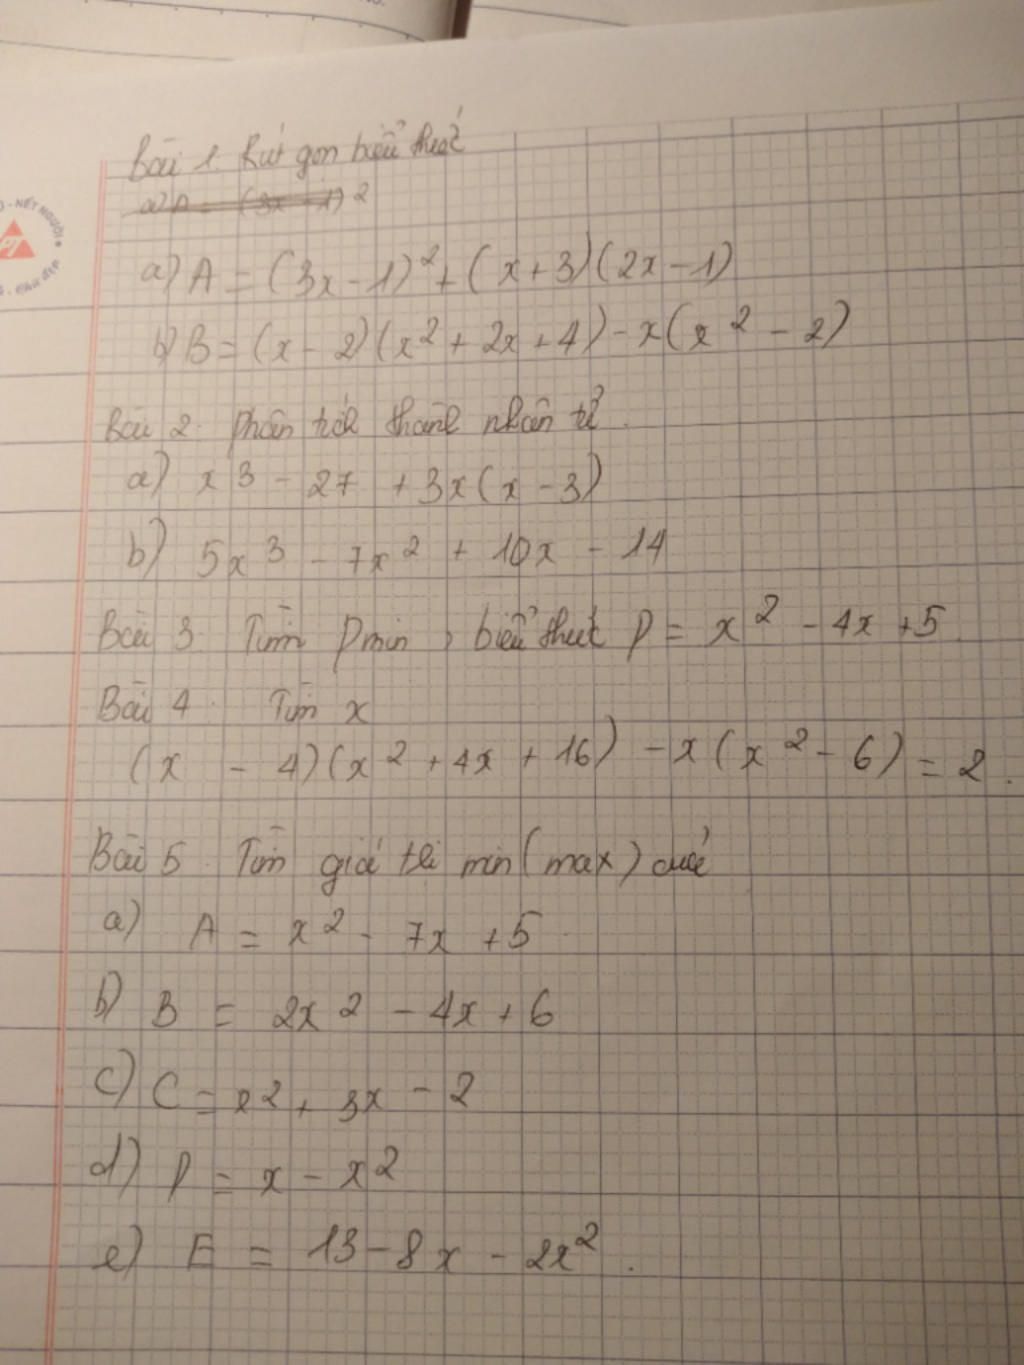 Bài 1. Rút gọn biểu thức
a) A = (3x - 1)²
a) A = (3x - 1)² + (x + 3)(2x - 1)
b) B = (x - 2)(x² + 2x + 4) - x(x² - 2)
Bài 2. Phân tích thành nhân tử.
a) x³ - 27 + 3x(x - 3)
b) 5x³ - 7x² + 10x - 14
Bài 3. Tìm Pmin, biểu thức P = x² - 4x + 5.
Bài 4. Tìm x
(x - 4)(x² + 4x + 16) - x(x² - 6) = 2.
Bài 5. Tìm giá trị min (max) của
a) A = x² - 7x + 5
b) B = 2x² - 4x + 6
c) C = x² + 3x - 2
d) D = x - x²
e) E = 13 - 8x - 2x².
NẾT NGƯỜI